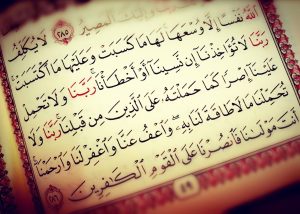 ٱلْمَصِيرُ ٢٨٥ لَا يُكَلِّفُ
ٱللَّهُ نَفْسًا إِلَّا وُسْعَهَا لَهَا مَا كَسَبَتْ وَعَلَيْهَا مَا ٱكْتَسَبَتْ
رَبَّنَا لَا تُؤَاخِذْنَا إِن نَّسِينَا أَوْ أَخْطَأْنَا رَبَّنَا وَلَا تَحْمِلْ
عَلَيْنَا إِصْرًا كَمَا حَمَلْتَهُۥ عَلَى ٱلَّذِينَ مِن قَبْلِنَا رَبَّنَا وَلَا
تُحَمِّلْنَا مَا لَا طَاقَةَ لَنَا بِهِۦ وَٱعْفُ عَنَّا وَٱغْفِرْ لَنَا وَٱرْحَمْنَا
أَنتَ مَوْلَىٰنَا فَٱنصُرْنَا عَلَى ٱلْقَوْمِ ٱلْكَٰفِرِينَ ٢٨٦
٤٩